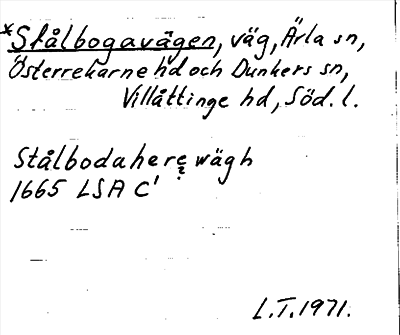 *Stålbogavägen, väg, Ärla sn,
Österrekarne hd och Dunkers sn,
Villåttinge hd, Söd. l.
Stålbodahere wägh
1665 LSA C¹
L.T. 1971.